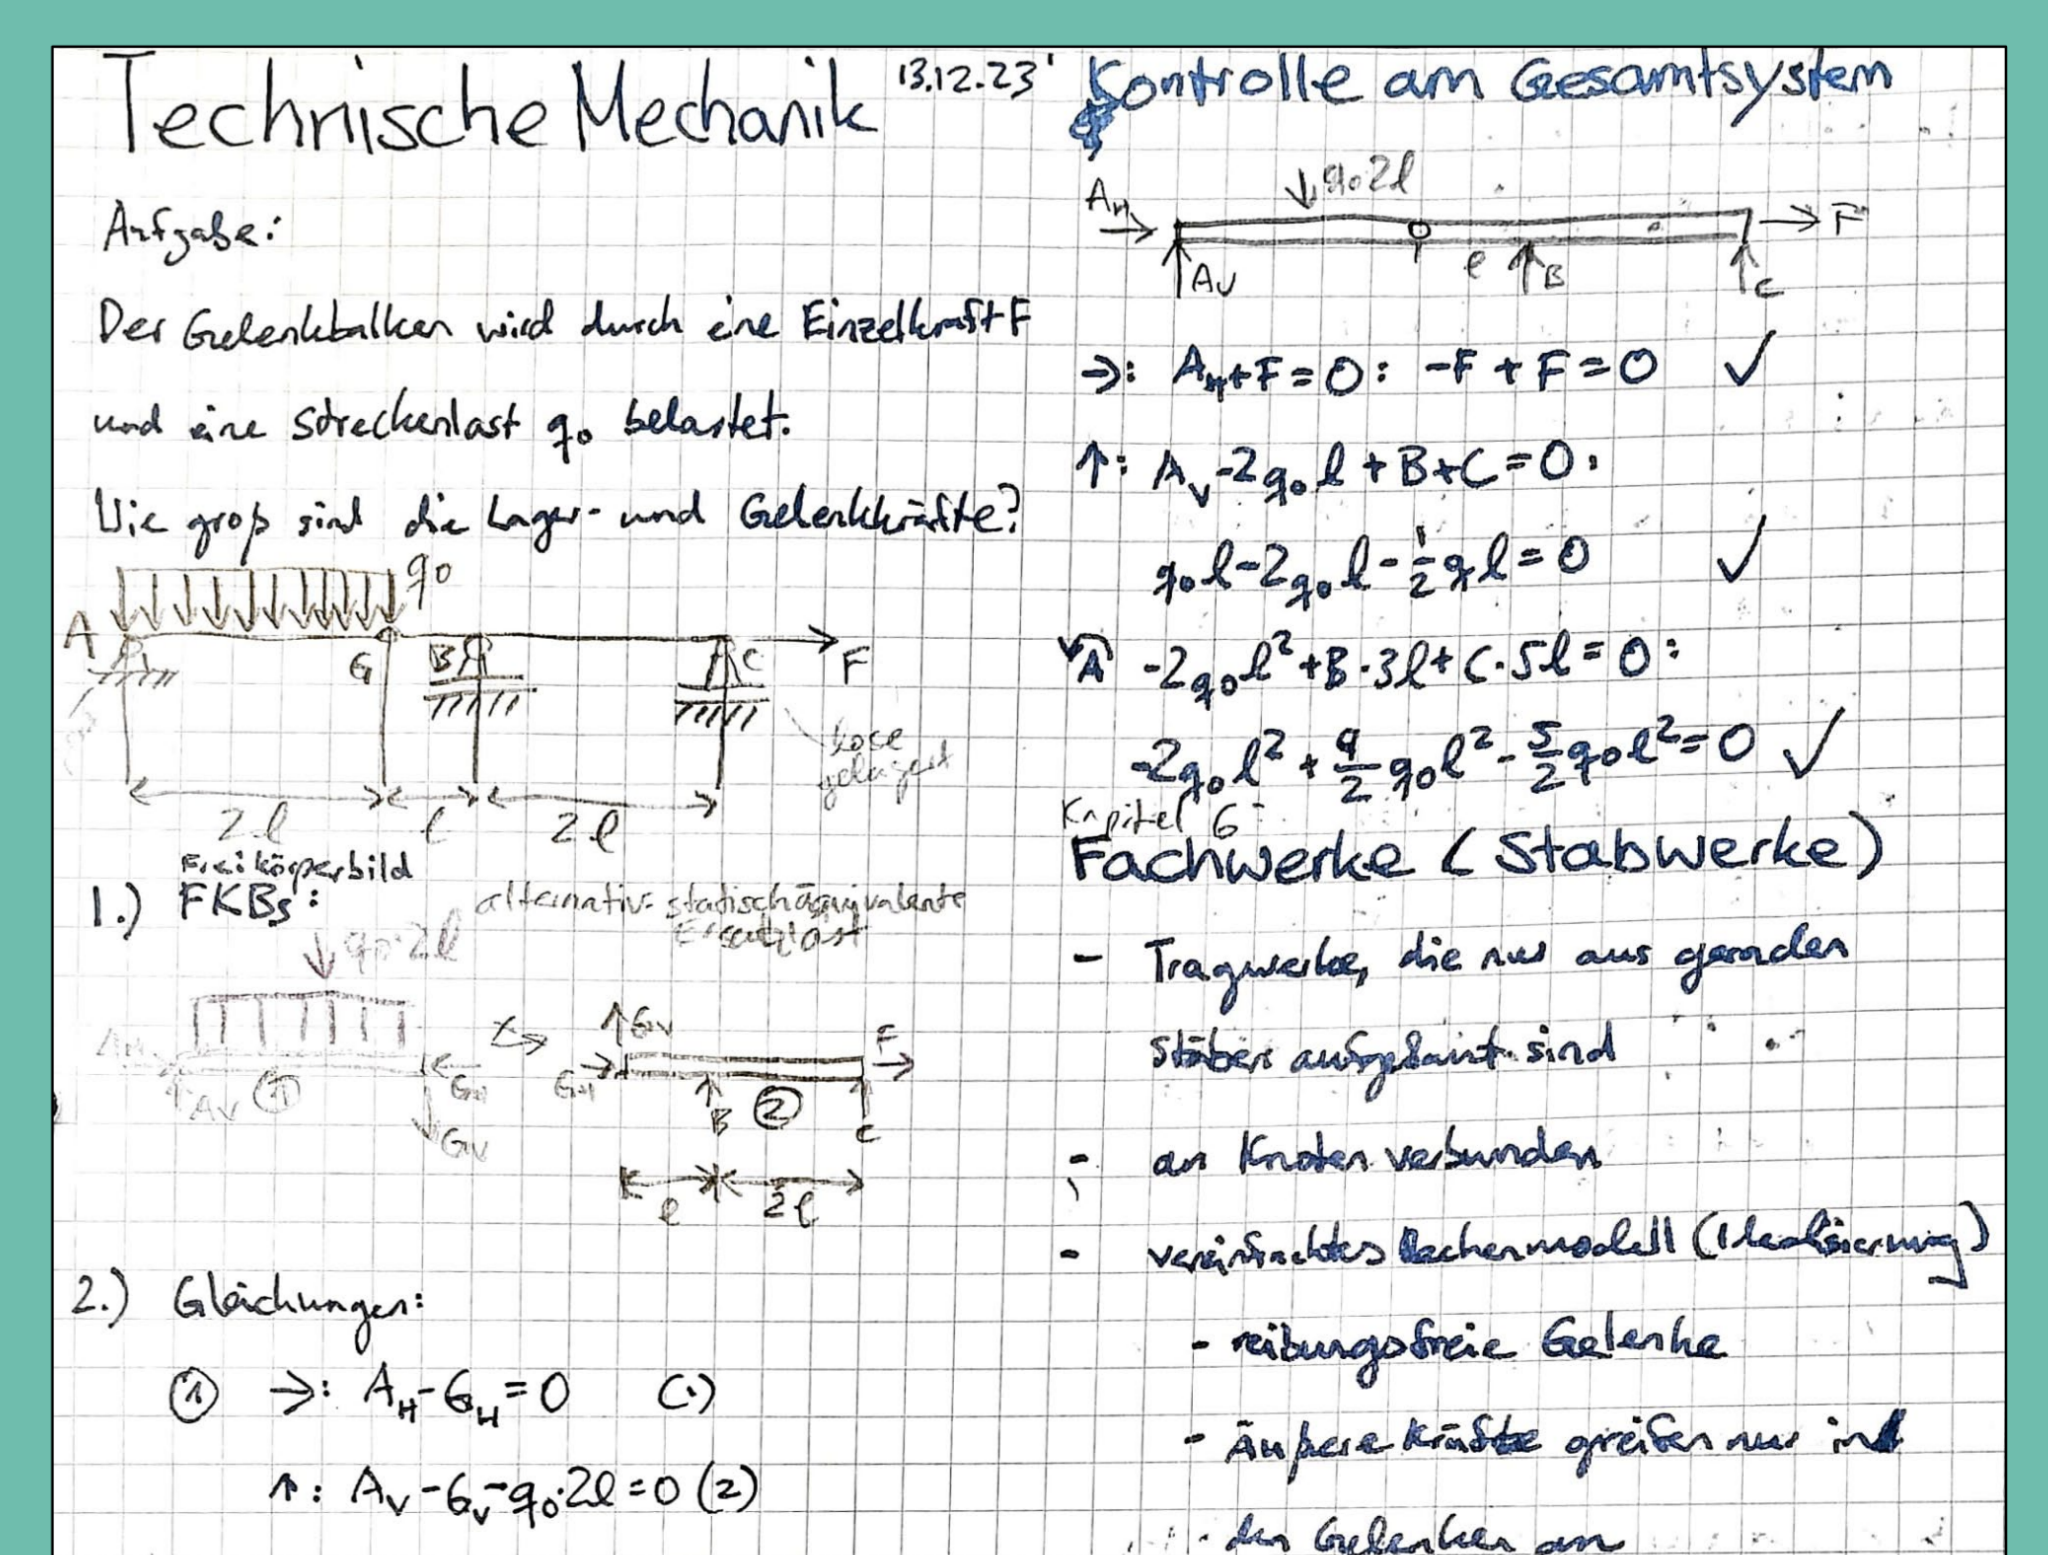 Technische Mechanik 13.12.23
Aufgabe:
Der Gelenkbalken wird durch eine Einzelkraft F
und eine Streckenlast q₀ belastet.
Wie groß sind die Lager- und Gelenkkräfte?
q₀
A
G
B
C
F
lose
gelagert
2l
l
2l
Freikörperbild
1.) FKBs:
alternativ: statisch äquivalente
Ersatzlast
↓ q₀·2l
A_H
A_V
①
G_H
G_V
↑G_V
G_H
B
②
F
C
l
2l
2.) Gleichungen:
① →: A_H - G_H = 0 (1)
↑: A_V - G_V - q₀·2l = 0 (2)
Kontrolle am Gesamtsystem
↓ q₀·2l
A_H
→ F
A_V
l
B
C
→: A_H + F = 0: -F + F = 0 ✓
↑: A_V - 2q₀l + B + C = 0:
q₀l - 2q₀l - ½ql = 0 ✓
A -2q₀l² + B·3l + C·5l = 0:
-2q₀l² + 9/2 q₀l² - 5/2 q₀l² = 0 ✓
Kapitel 6
Fachwerke (Stabwerke)
- Tragwerke, die nur aus geraden
Stäben aufgebaut sind
- an Knoten verbunden
- vereinfachtes Rechenmodell (Idealisierung)
- reibungsfreie Gelenke
- äußere Kräfte greifen nur in
den Gelenken an